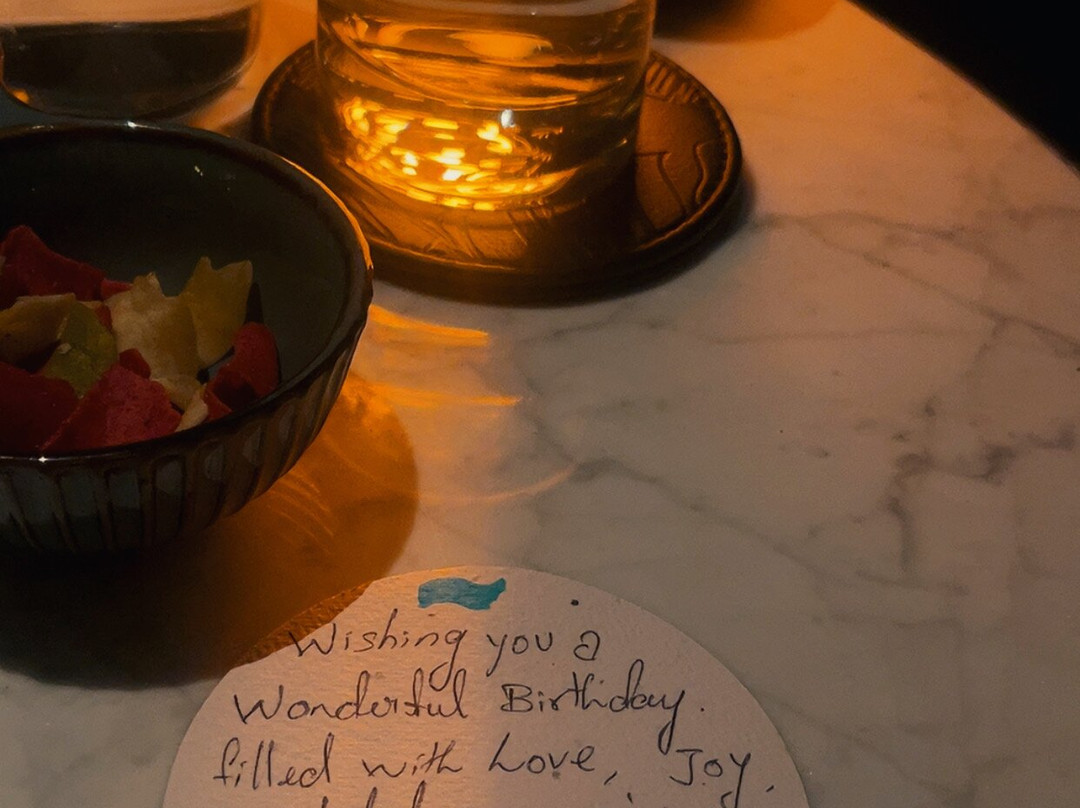 Wishing you a
Wonderful Birthday.
filled with Love, Joy,